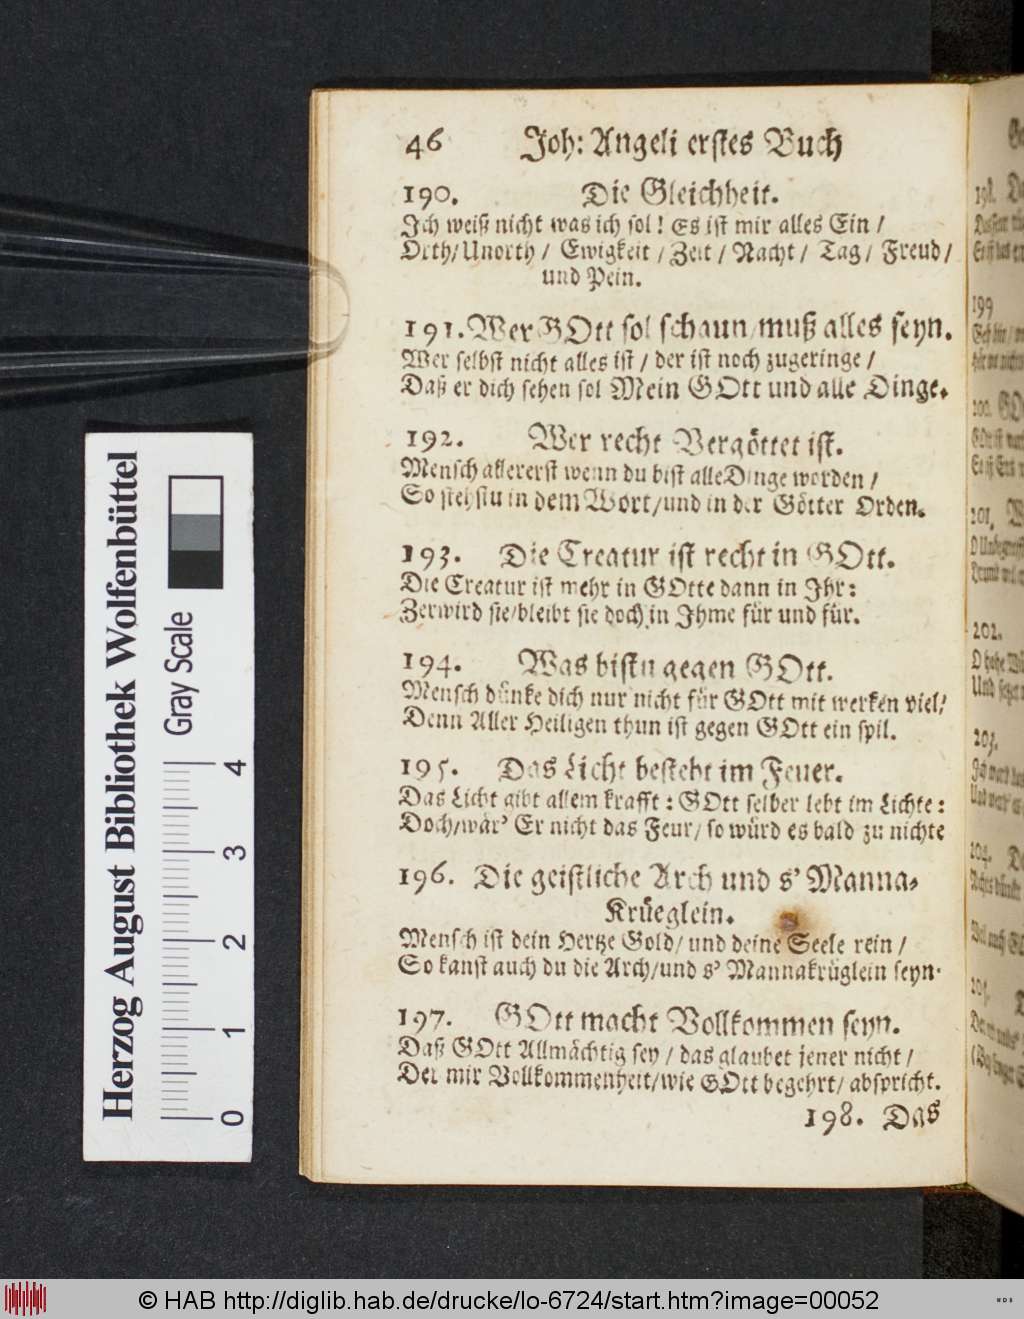 46 Joh: Angeli erstes Buch
190. Die Gleichheit.
Ich weiß nicht was ich sol! Es ist mir alles Ein /
Orth/ Unorth / Ewigkeit / Zeit / Nacht / Tag / Freud /
und Pein.
191. Wer GOtt sol schaun / muß alles seyn.
Wer selbst nicht alles ist / der ist noch zugeringe /
Daß er dich sehen sol Mein GOtt und alle Dinge.
192. Wer recht Vergöttet ist.
Mensch allererst wenn du bist alle Dinge worden /
So stehstu in dem Wort/ und in der Götter Orden.
193. Die Creatur ist recht in GOtt.
Die Creatur ist mehr in GOtte dann in Jhr:
Zerwird sie/ bleibt sie doch in Jhme für und für.
194. Was bistu gegen GOtt.
Mensch dünke dich nur nicht für GOtt mit werken viel/
Denn Aller Heiligen thun ist gegen GOtt ein spil.
195. Das Licht besteht im Feuer.
Das Licht gibt allem krafft: GOtt selber lebt im Lichte:
Doch/ wär' Er nicht das Feur/ so würd es bald zu nichte
196. Die geistliche Arch und s' Manna-
Krüeglein.
Mensch ist dein Hertze Gold/ und deine Seele rein /
So kanst auch du die Arch/ und s' Mannakrüglein seyn.
197. GOtt macht Vollkommen seyn.
Daß GOtt Allmächtig sey / das glaubet jener nicht /
Der mir Vollkommenheit/ wie GOtt begehrt/ abspricht.
198. Das
199
200.
201.
202.
203.
204.
205.
Herzog August Bibliothek Wolfenbüttel
Gray Scale
0 1 2 3 4
© HAB http://diglib.hab.de/drucke/lo-6724/start.htm?image=00052